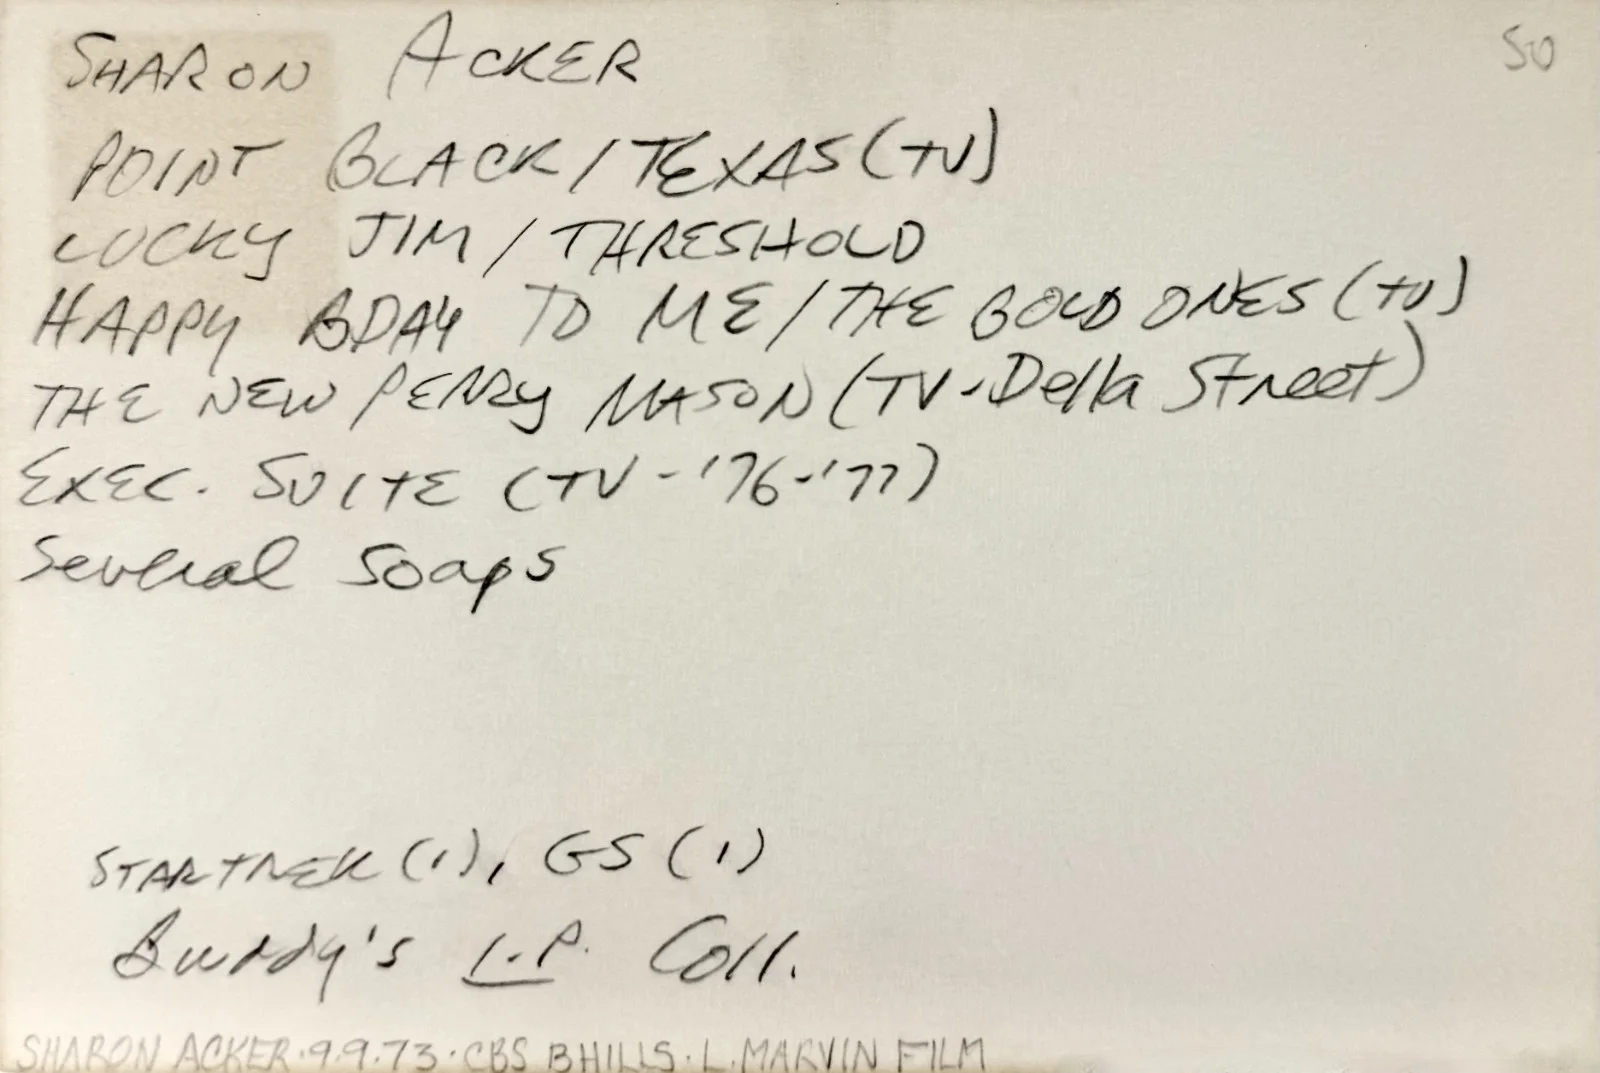 SHARON ACKER
50
POINT BLACK / TEXAS (TV)
LUCKY JIM / THRESHOLD
HAPPY BDAY TO ME / THE BOLD ONES (TV)
THE NEW PERRY MASON (TV-Della Street)
EXEC. SUITE (TV-'76-'77)
Several Soaps
STARTREK (1), GS (1)
Buddy's L.P. Coll.
SHARON ACKER·9·9·73·CBS BHILLS·L.MARVIN FILM